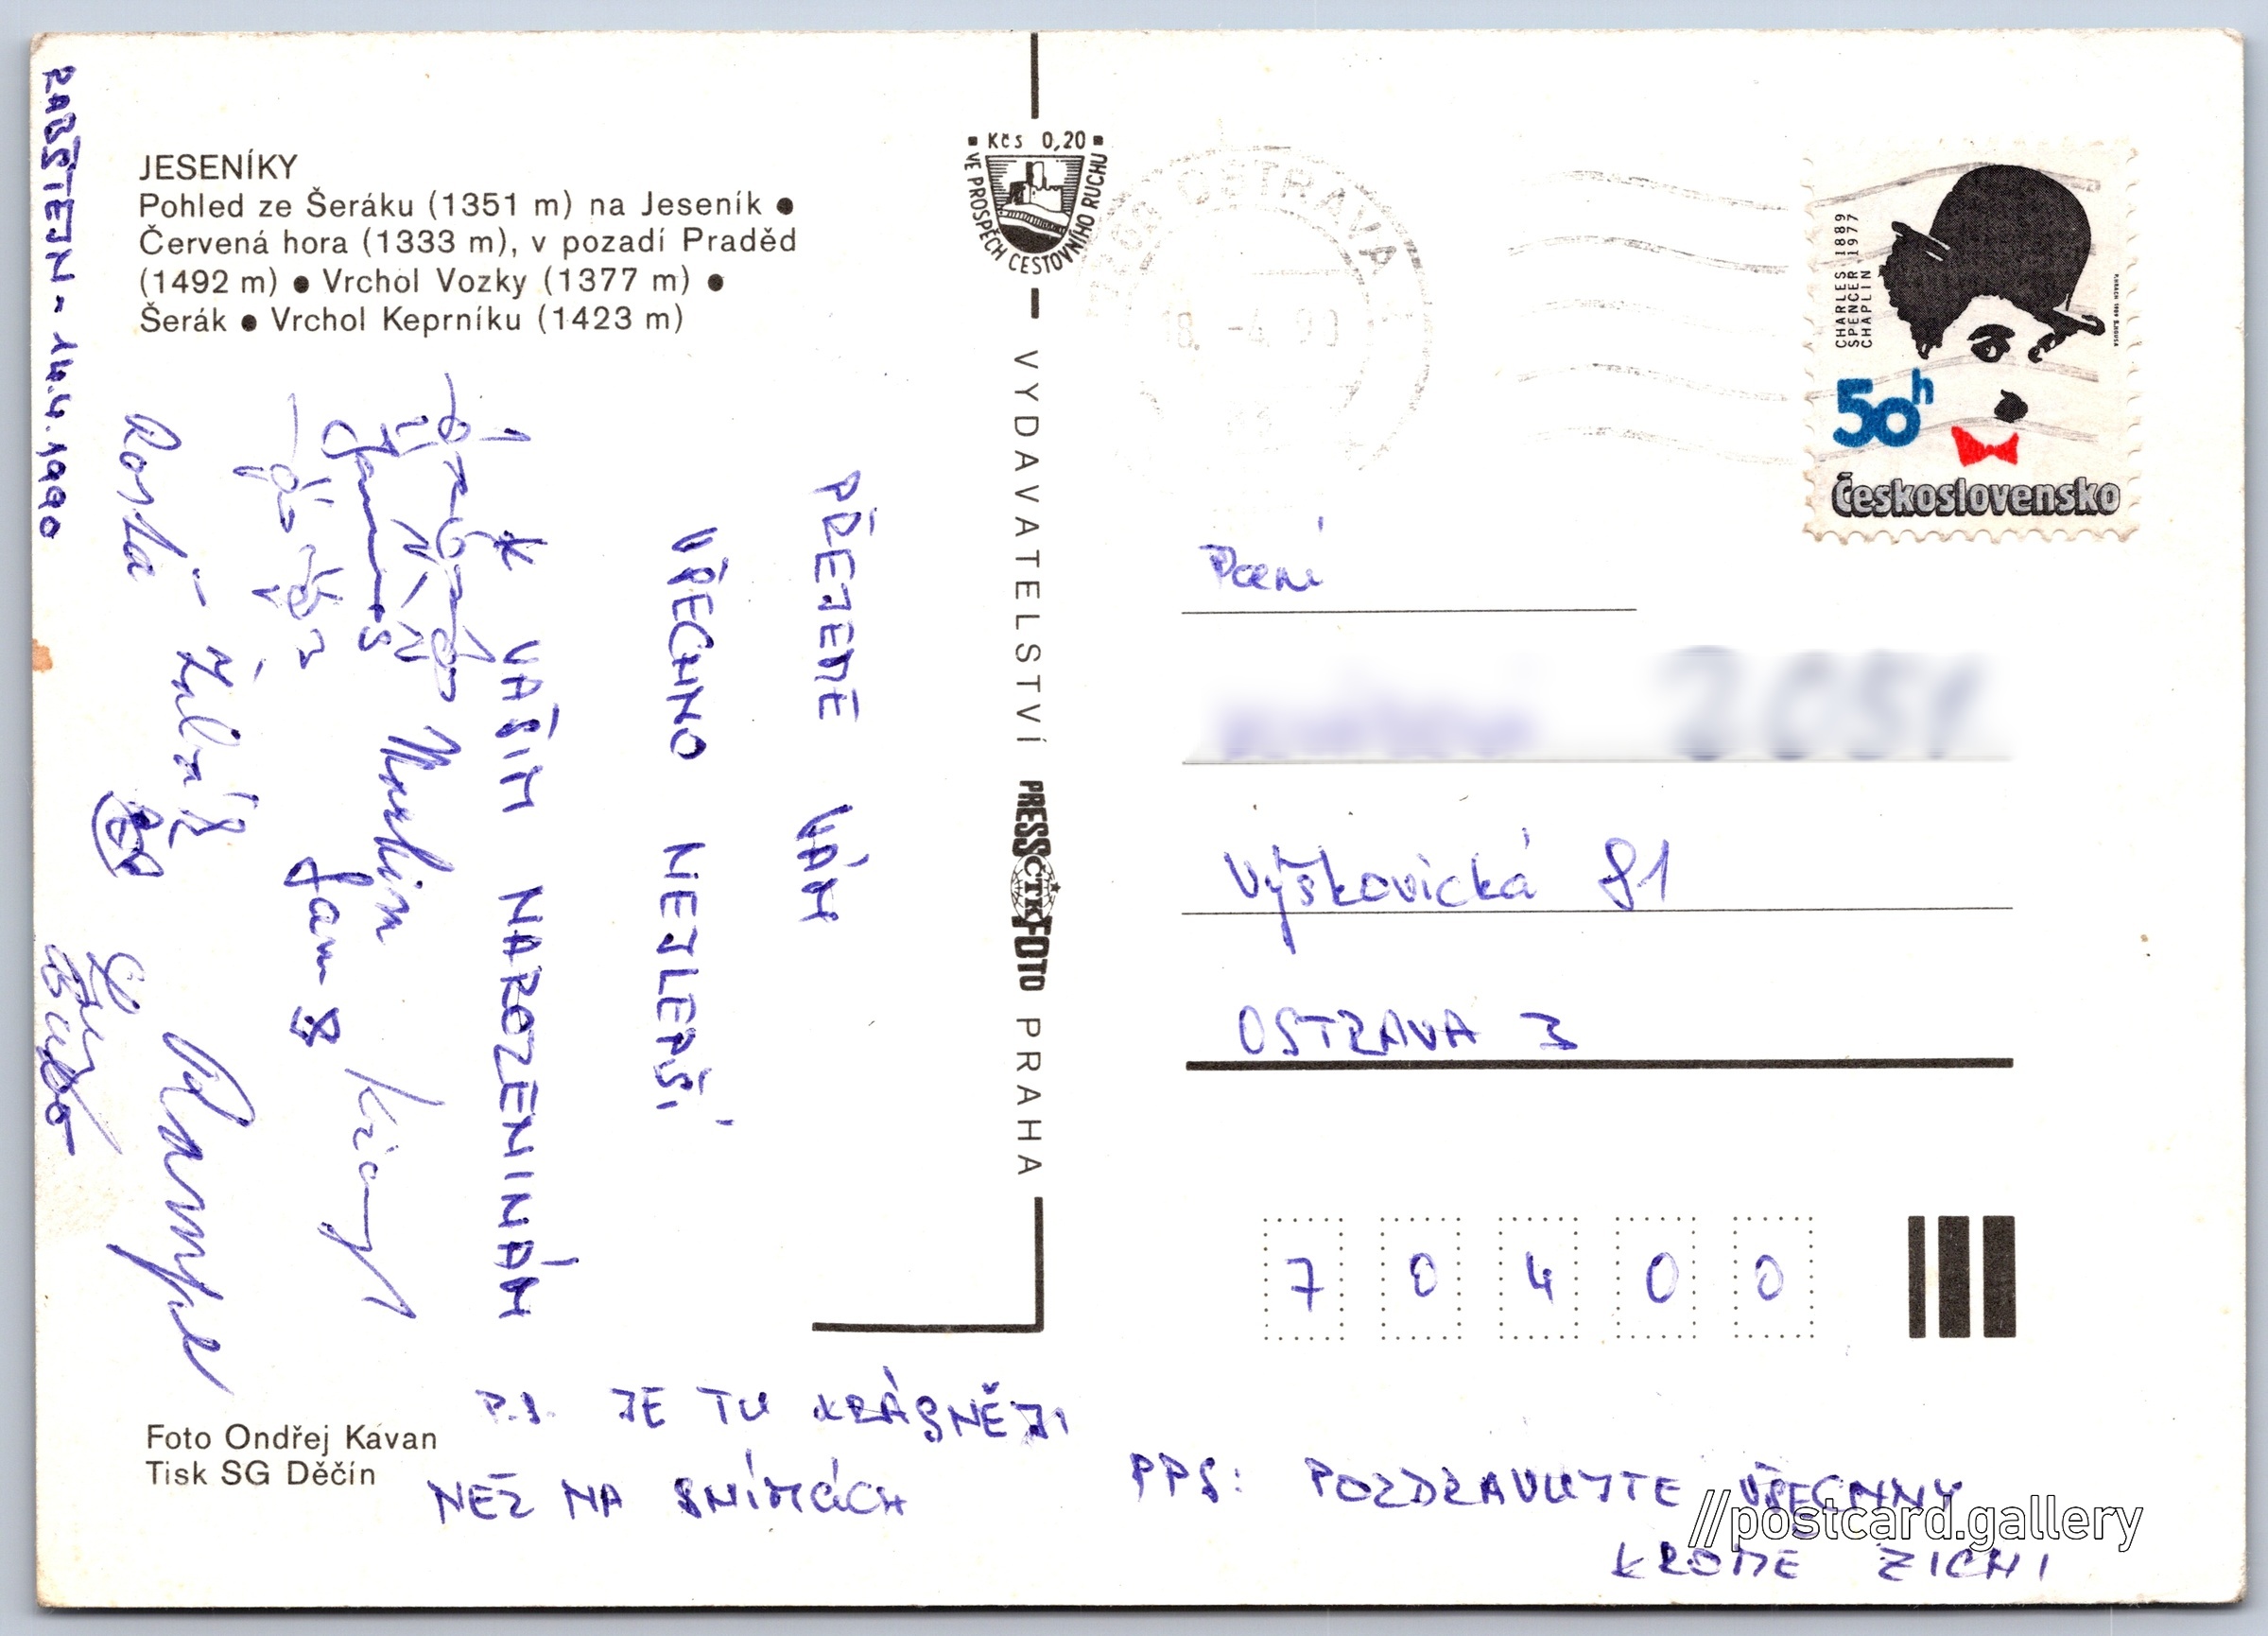 RABŠTEJN - 14.4.1990
JESENÍKY
Pohled ze Šeráku (1351 m) na Jeseník ●
Červená hora (1333 m), v pozadí Praděd
(1492 m) ● Vrchol Vozky (1377 m) ●
Šerák ● Vrchol Keprníku (1423 m)
PŘEJEME VÁM
VŠECHNO NEJLEPŠÍ
K VAŠIM NAROZENINÁM
Rosťa
P.S. JE TU KRÁSNĚJI
NEŽ NA SNÍMCÁCH
Foto Ondřej Kavan
Tisk SG Děčín
Kčs 0,20
VE PROSPĚCH CESTOVNÍHO RUCHU
VYDAVATELSTVÍ PRESSFOTO PRAHA
ČTK
OSTRAVA
-4.90
CHARLES 1889
SPENCER 1977
CHAPLIN
50h
Československo
Paní
2051
Výškovická 81
OSTRAVA 3
7 0 4 0 0
PPS: POZDRAVUJTE VŠECHNY
KROMĚ ZICHI
//postcard.gallery